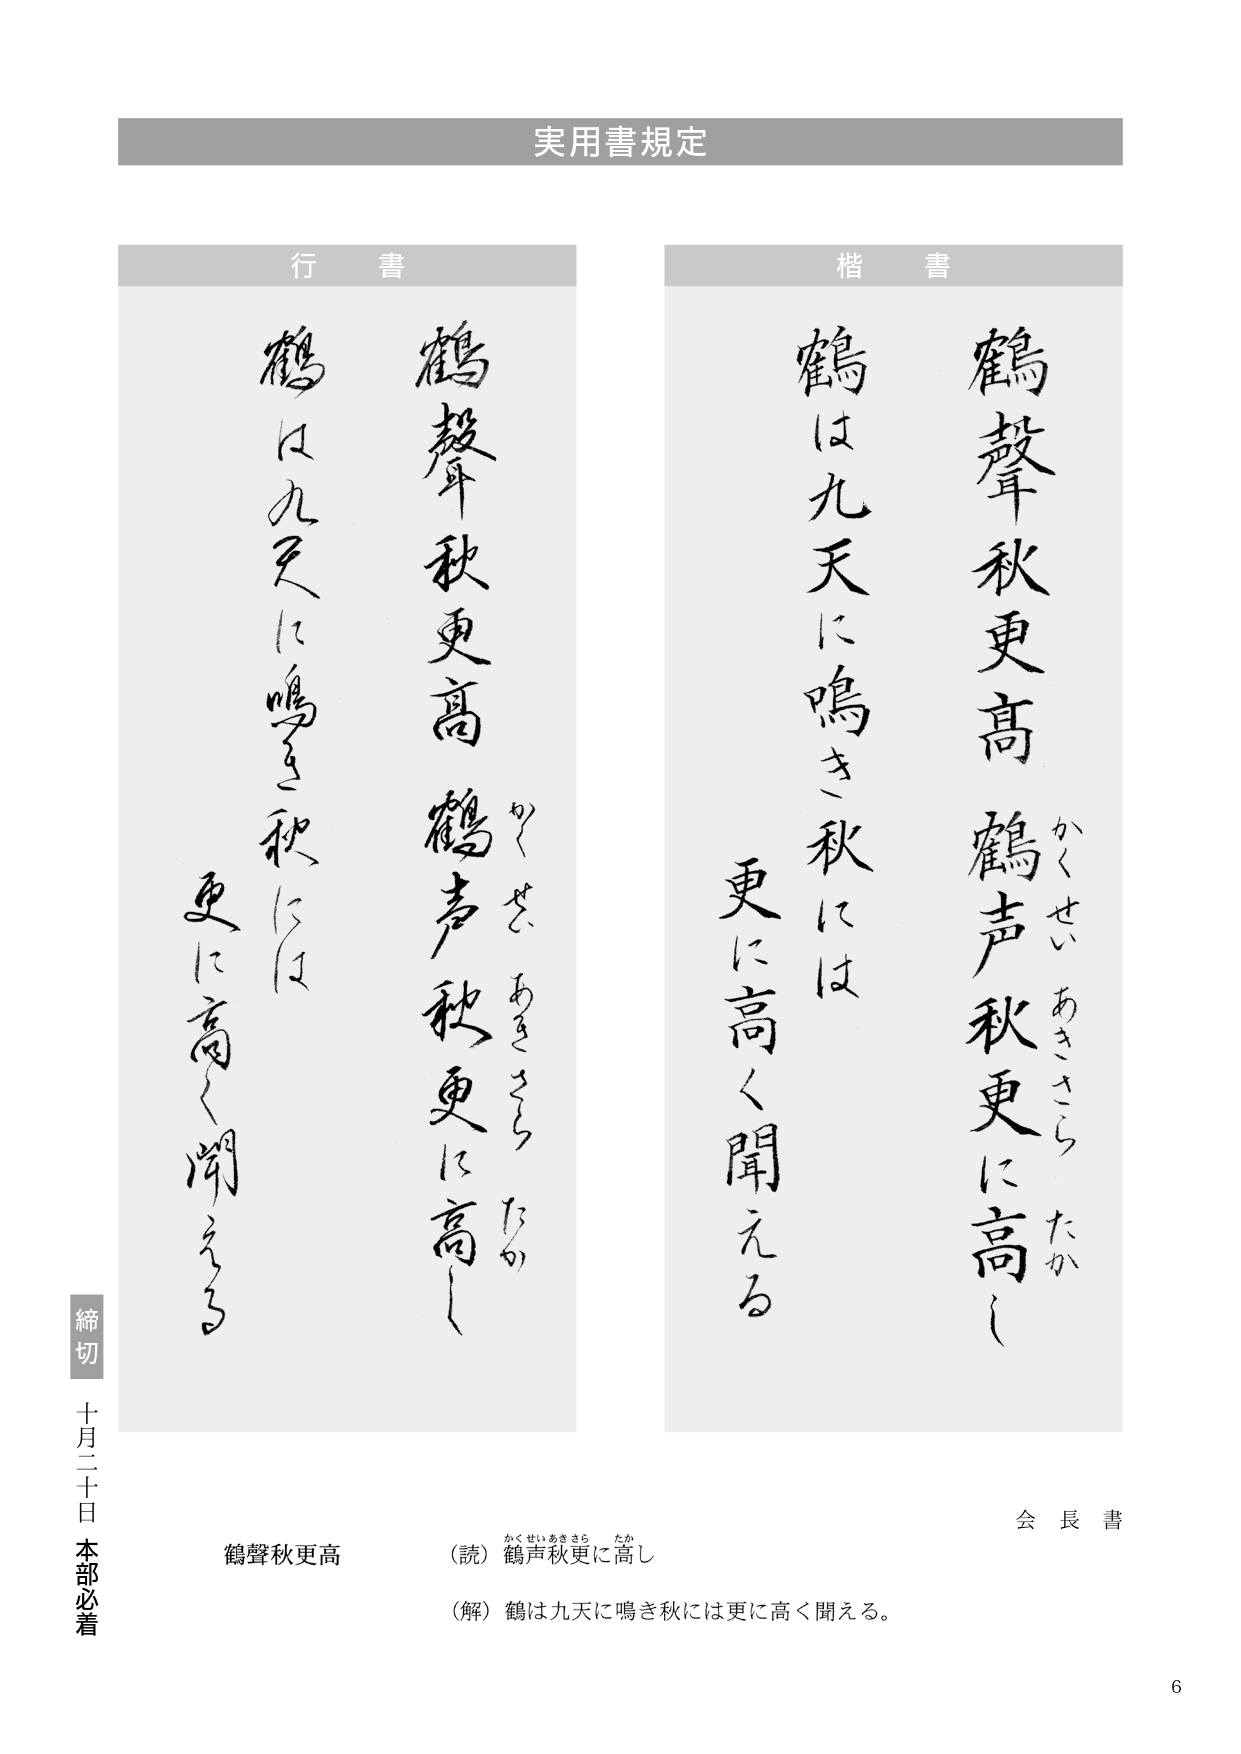 実用書規定
楷書
鶴聲秋更高 鶴声秋更に高し
かくせい あきさら たか
鶴は九天に鳴き秋には
更に高く聞える
行書
鶴聲秋更高 鶴声秋更に高し
かくせい あきさら たか
鶴は九天に鳴き秋には
更に高く聞える
会長書
鶴聲秋更高
かくせいあきさら たか
（読）鶴声秋更に高し
（解）鶴は九天に鳴き秋には更に高く聞える。
締切 十月二十日 本部必着
6